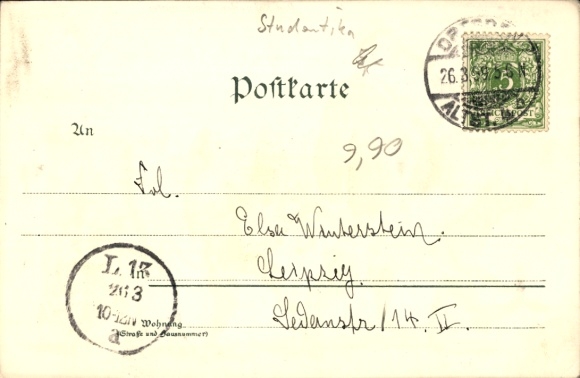 Studentika
Postkarte
26.3.99
5
REICHSPOST
ALTST.
An
9,90
Frl.
Elsa Winterstein.
Leipzig.
in
Sedanstr/14. II.
L. 13
26 3
10-12N
a
Wohnung
(Straße und Hausnummer)